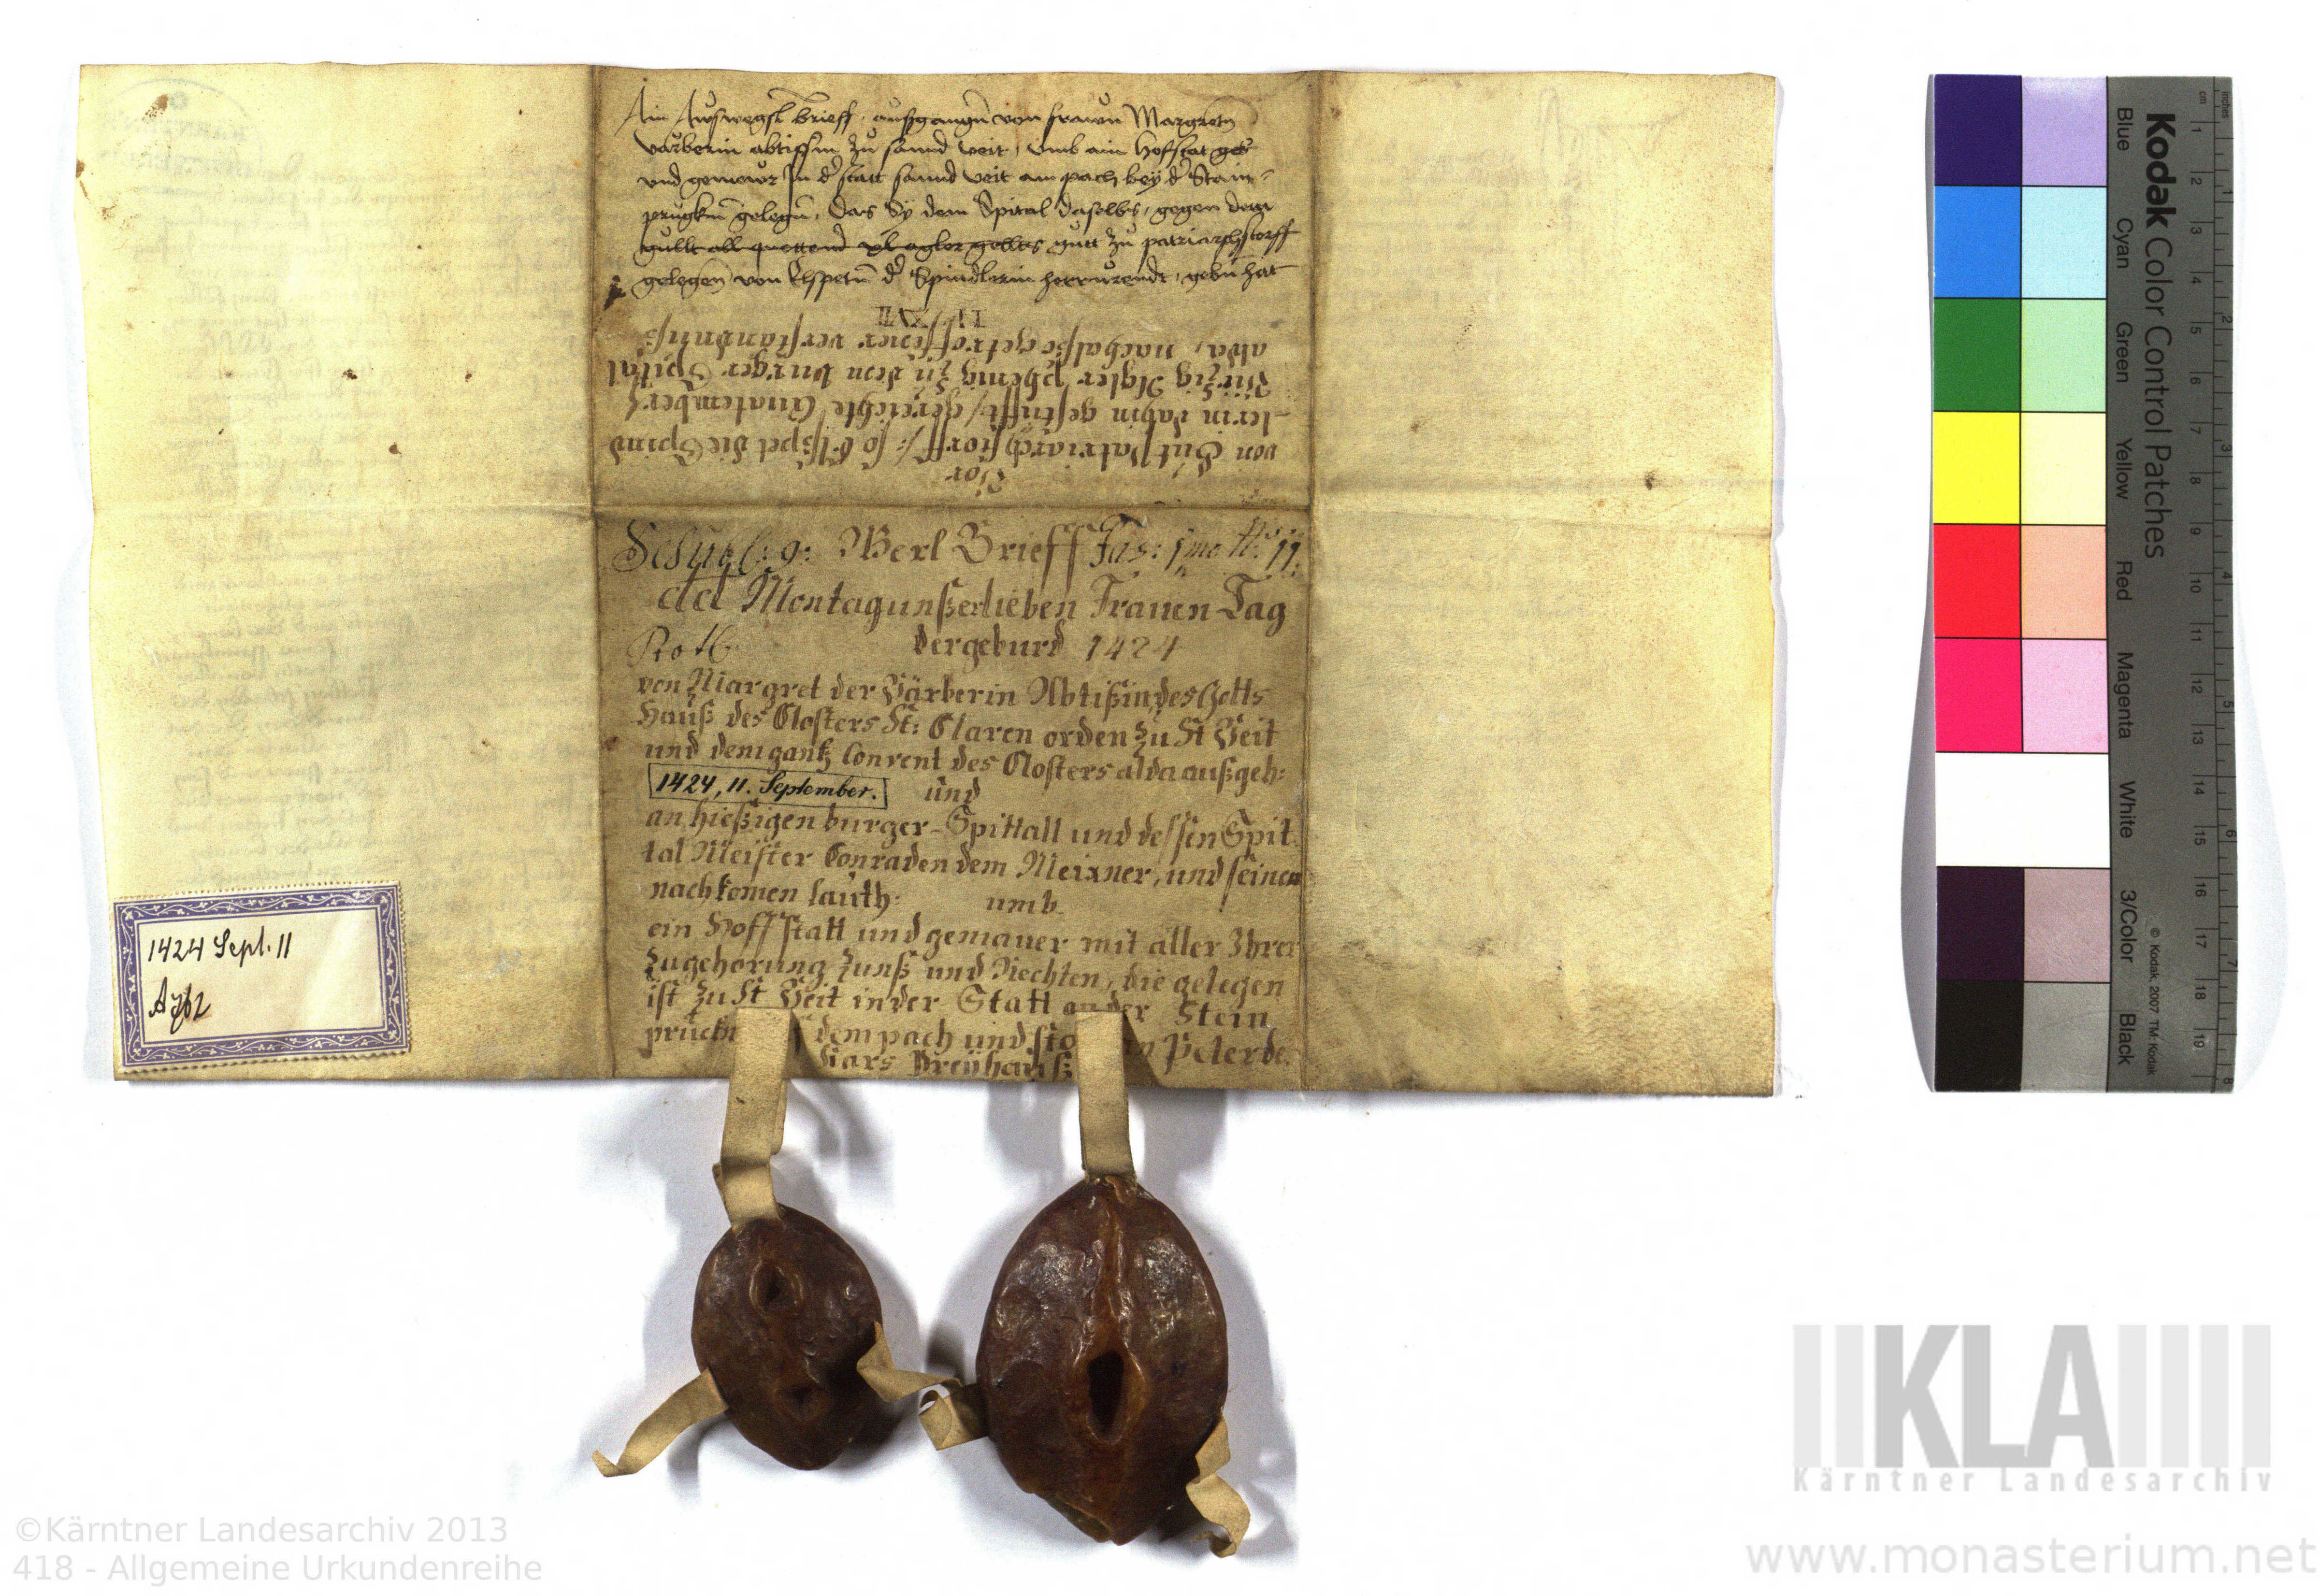 Ain Auswegsl brieff, außgangn̄ von frawn Margretn
värberin abtissin zu sannd Veit, umb ain Hofstat
und gemewr In d' statt sannd Veit am pach bey d' Stain-
prugkn̄ gelegn̄, das Sy dem Spital daselbs, gegen dem
gullt all quottemb xl agler gelltes gutt zu patriarchstorff
gelegen von Elspetn̄ d' Spindlerin herrurendt, gebn̄ hat
II XVII
Vor
von Gut Patriarchstorff /: so Elßpet die Spind
-lerin dahin gestifft :/ gereichte Quatember
Viirzig Agler Phenig zu dem burger Spital
alda, nachalso getroffener verstandnuß
Schubl: 9: Merl Brieff Fas: 1mo N: 11:
dd Montag unßerlieben Frauen Tag
Roth dergeburd 1424
von Margret der Värberin Abtißin des Gotts
Hauß des Closters St: Claren orden zu St Veit
und dem gantz Convent des Closters alda außgeh:
1424, 11. September. und
an hießigen burger-Spittall und dessen Spit
tal Meister Conraden dem Meixner, und seinen
nachkomen lauth: umb
ein Hoffstatt und gemauer mit aller Ihrer
Zugehorung Zunß und Rechten, die gelegen
ist zu St Veit in der Statt an der Stein
pruckn dem pach und sto Peter de
Preyhauß
1424 Sept. 11
A 762
Kodak Color Control Patches
Blue Cyan Green Yellow Red Magenta White 3/Color Black
© Kodak, 2007 TM: Kodak
cm 1 2 3 4 5 6 7 8 9 10 11 12 13 14 15 16 17 18 19
inches 1 2 3 4 5 6 7 8
KLA
Kärntner Landesarchiv
©Kärntner Landesarchiv 2013
418 - Allgemeine Urkundenreihe
www.monasterium.net